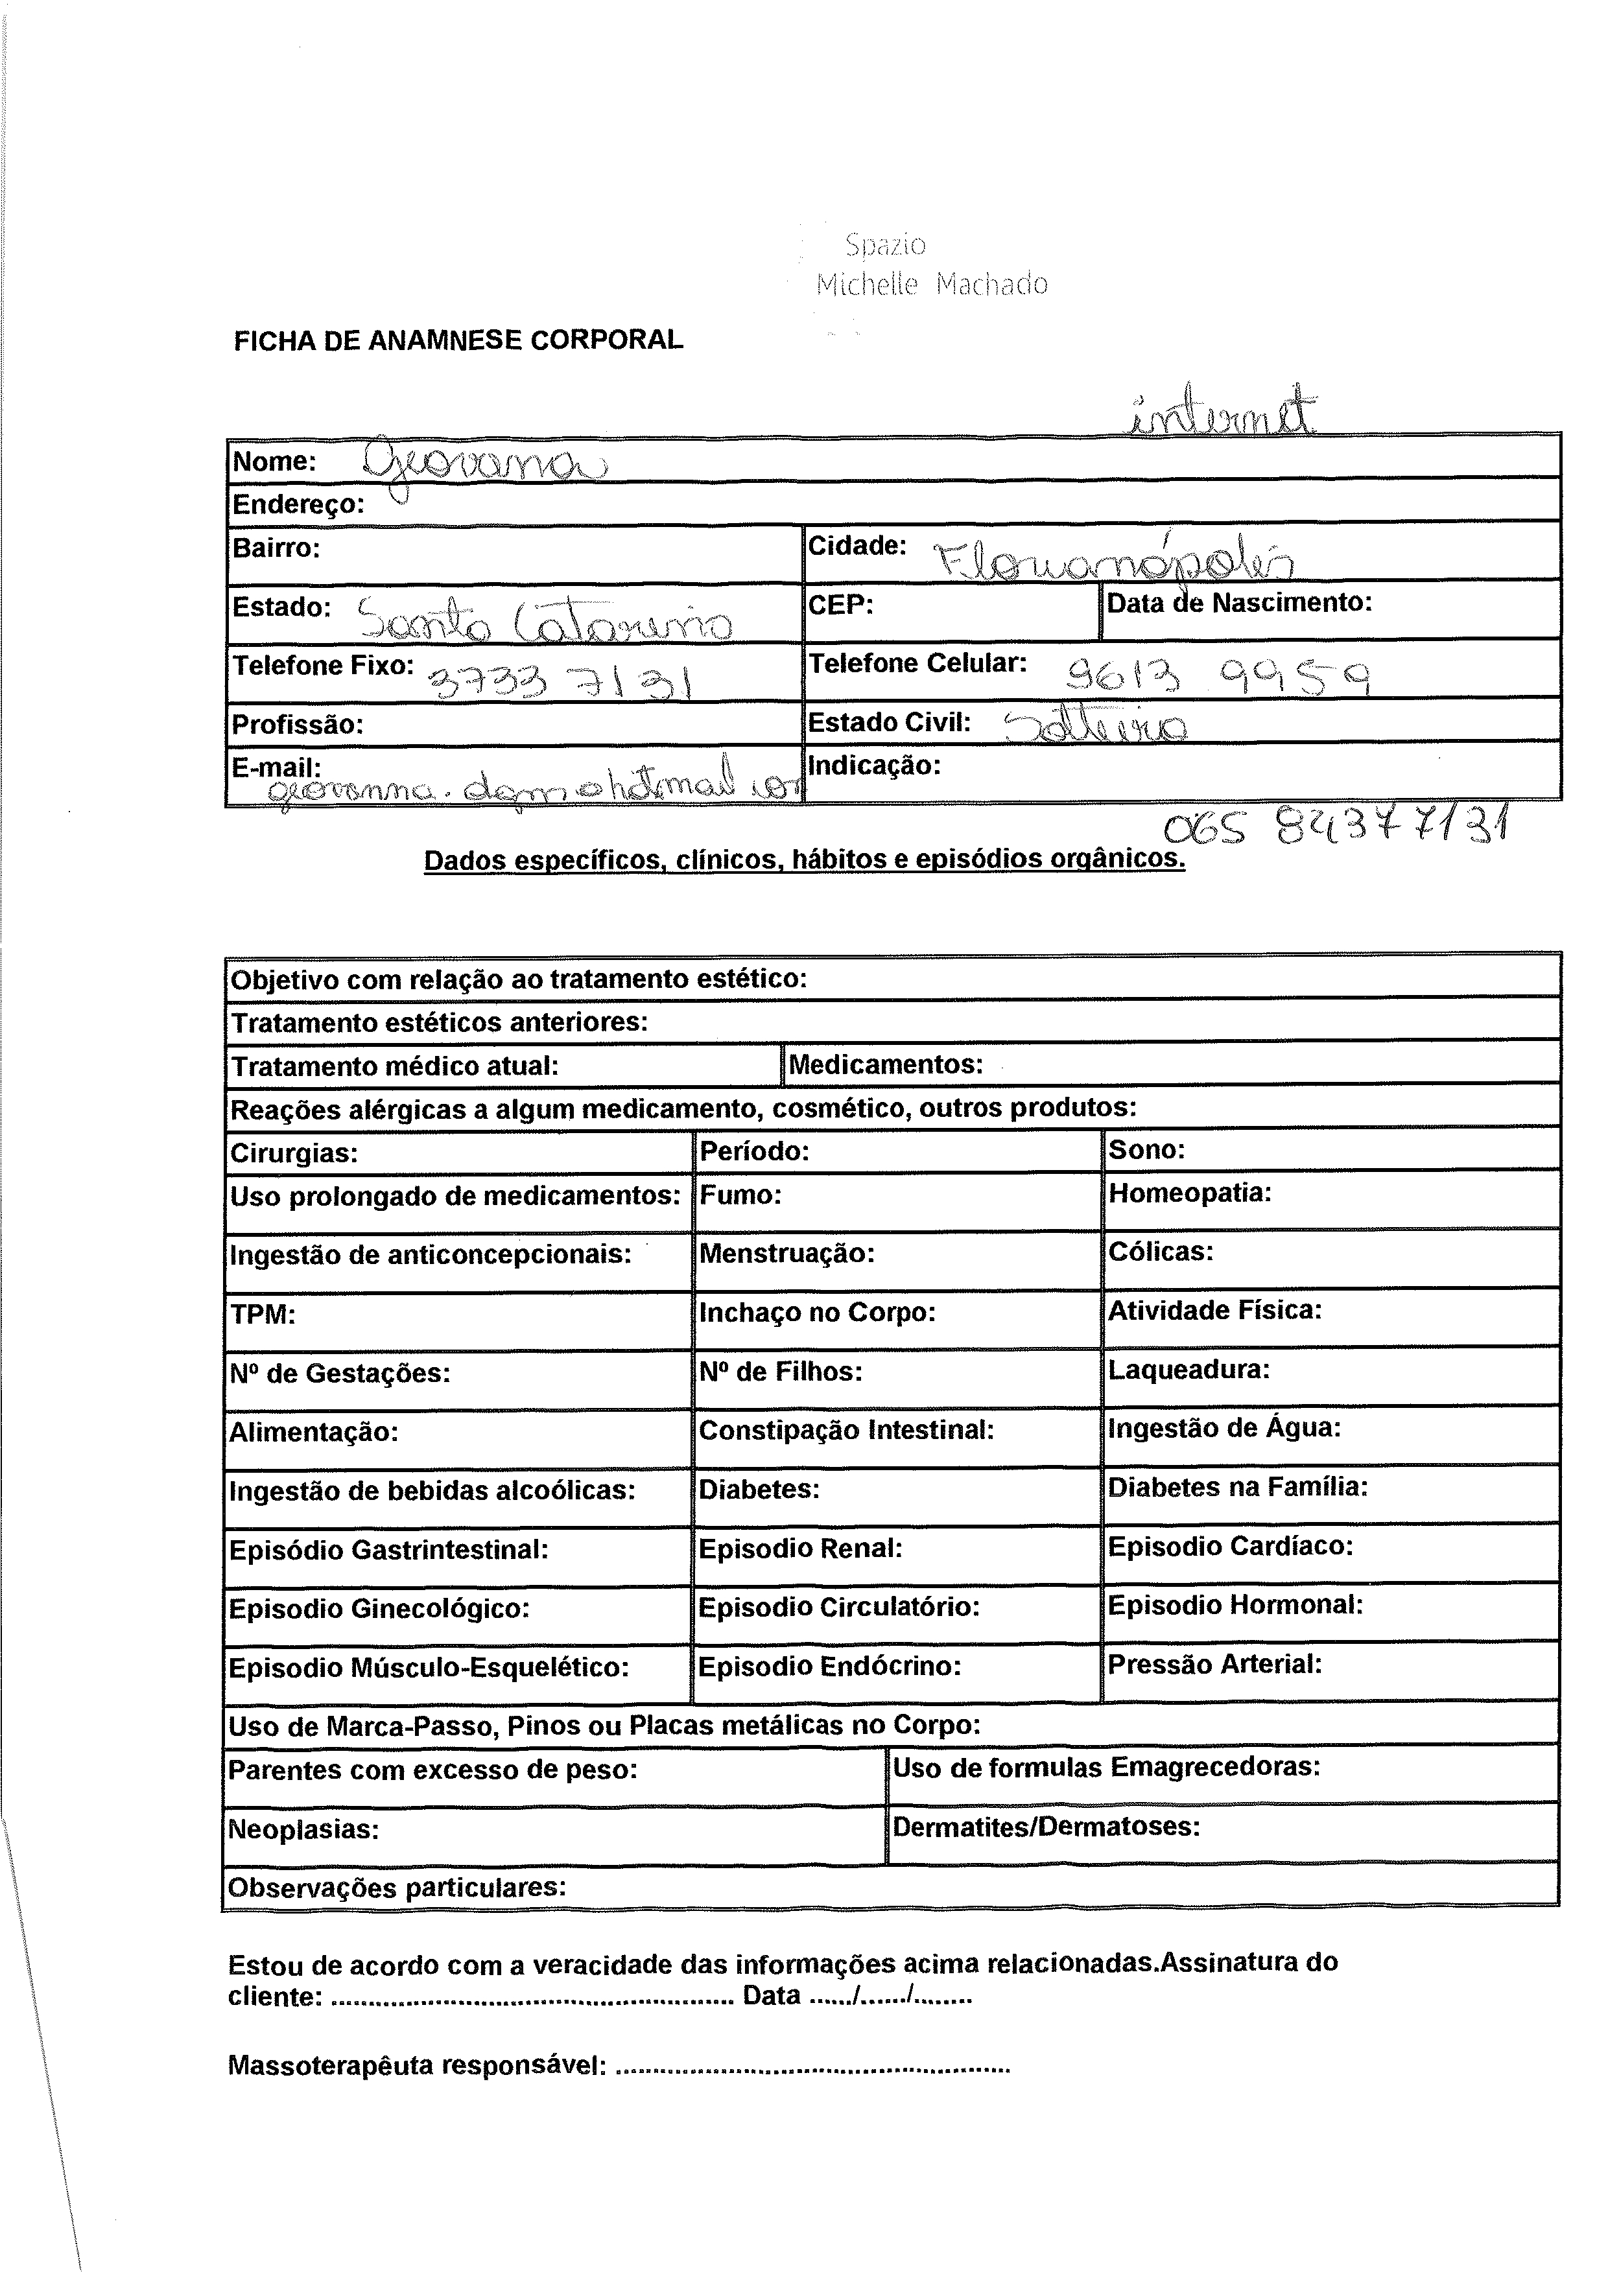 Spazio
Michelle Machado
FICHA DE ANAMNESE CORPORAL
internet
Nome: Geovana
Endereço:
Bairro: Cidade: Florianópolis
Estado: Santa Catarina CEP: Data de Nascimento:
Telefone Fixo: 3733 7131 Telefone Celular: 9613 9959
Profissão: Estado Civil: Solteira
E-mail: Indicação:
geovanna.dgm@hotmail.com
065 84377131
Dados específicos, clínicos, hábitos e episódios orgânicos.
Objetivo com relação ao tratamento estético:
Tratamento estéticos anteriores:
Tratamento médico atual: Medicamentos:
Reações alérgicas a algum medicamento, cosmético, outros produtos:
Cirurgias: Período: Sono:
Uso prolongado de medicamentos: Fumo: Homeopatia:
Ingestão de anticoncepcionais: Menstruação: Cólicas:
TPM: Inchaço no Corpo: Atividade Física:
Nº de Gestações: Nº de Filhos: Laqueadura:
Alimentação: Constipação Intestinal: Ingestão de Água:
Ingestão de bebidas alcoólicas: Diabetes: Diabetes na Família:
Episódio Gastrintestinal: Episodio Renal: Episodio Cardíaco:
Episodio Ginecológico: Episodio Circulatório: Episodio Hormonal:
Episodio Músculo-Esquelético: Episodio Endócrino: Pressão Arterial:
Uso de Marca-Passo, Pinos ou Placas metálicas no Corpo:
Parentes com excesso de peso: Uso de formulas Emagrecedoras:
Neoplasias: Dermatites/Dermatoses:
Observações particulares:
Estou de acordo com a veracidade das informações acima relacionadas.Assinatura do
cliente: ...................................................... Data ....../....../........
Massoterapêuta responsável: ....................................................